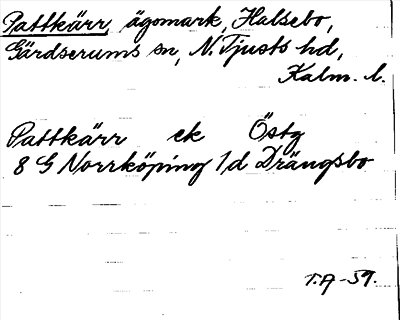 Pattkärr, ägomark, Halsebo,
Gärdserums sn, N. Tjusts hd,
Kalm. l.
Pattkärr ek Östg
8 G Norrköping 1d Drängsbo
T.A-59.